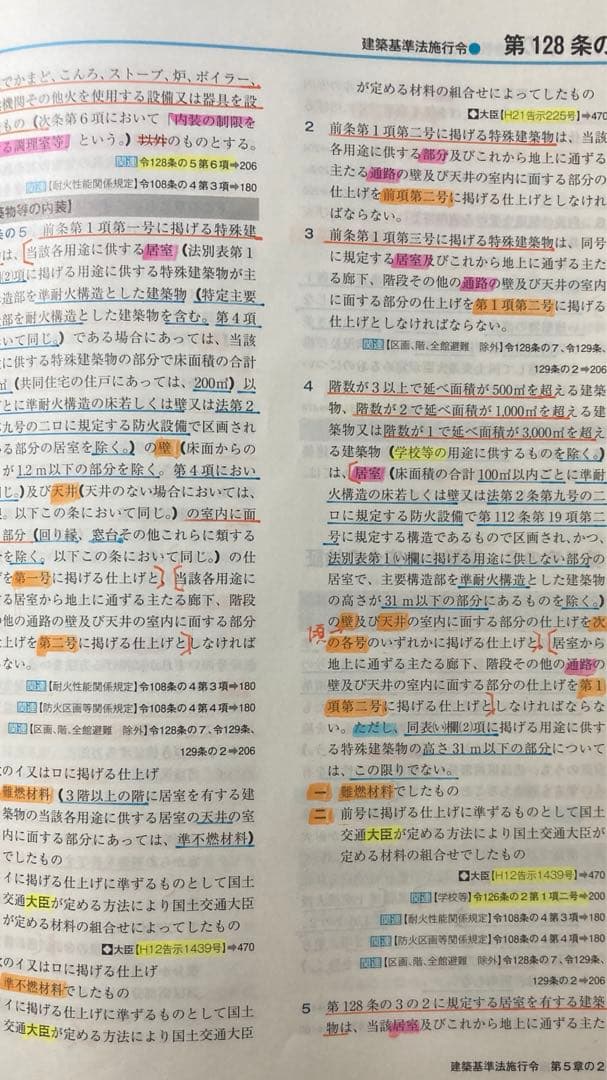 建築基準法施行令● 第128条の
でかまど、こんろ、ストーブ、炉、ボイラー、
機関その他火を使用する設備又は器具を設
もの(次条第6項において「内装の制限を
る調理室等」という。)以外のものとする。
関連 令128条の5第6項➡206
関連【耐火性能関係規定】令108条の4第3項➡180
築物等の内装】
条の5 前条第1項第一号に掲げる特殊建
は、当該各用途に供する居室(法別表第1
(2)項に掲げる用途に供する特殊建築物が主
造部を準耐火構造とした建築物(特定主要
部を耐火構造とした建築物を含む。第4項
いて同じ。)である場合にあっては、当該
に供する特殊建築物の部分で床面積の合計
㎡(共同住宅の住戸にあっては、200㎡)以
とに準耐火構造の床若しくは壁又は法第2
九号の二ロに規定する防火設備で区画され
る部分の居室を除く。)の壁(床面からの
が1.2m以下の部分を除く。第4項におい
同じ。)及び天井(天井のない場合においては、
。以下この条において同じ。)の室内に面
部分(回り縁、窓台その他これらに類する
を除く。以下この条において同じ。)の仕
を第一号に掲げる仕上げと、当該各用途に
る居室から地上に通ずる主たる廊下、階段
の他の通路の壁及び天井の室内に面する部分
上げを第二号に掲げる仕上げとしなければ
ない。
関連【耐火性能関係規定】令108条の4第3項➡180
関連【防火区画等関係規定】令108条の4第4項➡180
関連【区画、階、全館避難 除外】令128条の7、令129条、
129条の2➡206
次のイ又はロに掲げる仕上げ
難燃材料(3階以上の階に居室を有する建
築物の当該各用途に供する居室の天井の室
内に面する部分にあっては、準不燃材料)
でしたもの
イに掲げる仕上げに準ずるものとして国土
交通大臣が定める方法により国土交通大臣
が定める材料の組合せによってしたもの
◆大臣【H12告示1439号】➡470
次のイ又はロに掲げる仕上げ
準不燃材料でしたもの
イに掲げる仕上げに準ずるものとして国土
交通大臣が定める方法により国土交通大臣
が定める材料の組合せによってしたもの
◆大臣【H21告示225号】➡470
2 前条第1項第二号に掲げる特殊建築物は、当該
各用途に供する部分及びこれから地上に通ずる
主たる通路の壁及び天井の室内に面する部分の
仕上げを前項第二号に掲げる仕上げとしなけれ
ばならない。
3 前条第1項第三号に掲げる特殊建築物は、同号
に規定する居室及びこれから地上に通ずる主た
る廊下、階段その他の通路の壁及び天井の室内
に面する部分の仕上げを第1項第二号に掲げる
仕上げとしなければならない。
関連【区画、階、全館避難 除外】令128条の7、令129条、
129条の2➡206
4 階数が3以上で延べ面積が500㎡を超える建築
物、階数が2で延べ面積が1,000㎡を超える建
築物又は階数が1で延べ面積が3,000㎡を超え
る建築物(学校等の用途に供するものを除く。)
は、居室(床面積の合計100㎡以内ごとに準耐
火構造の床若しくは壁又は法第2条第九号の二
ロに規定する防火設備で第112条第19項第二
号に規定する構造であるもので区画され、かつ、
法別表第1(い)欄に掲げる用途に供しない部分の
居室で、主要構造部を準耐火構造とした建築物
の高さが31m以下の部分にあるものを除く。)
の壁及び天井の室内に面する部分の仕上げを次
の各号のいずれかに掲げる仕上げと、居室から
地上に通ずる主たる廊下、階段その他の通路の
壁及び天井の室内に面する部分の仕上げを第1
項第二号に掲げる仕上げとしなければならな
い。ただし、同表(い)欄(2)項に掲げる用途に供す
る特殊建築物の高さ31m以下の部分について
は、この限りでない。
一 難燃材料でしたもの
二 前号に掲げる仕上げに準ずるものとして国土
交通大臣が定める方法により国土交通大臣が
定める材料の組合せでしたもの
◆大臣【H12告示1439号】➡470
関連【学校等】令126条の2第1項二号➡200
関連【耐火性能関係規定】令108条の4第3項➡180
関連【防火区画等関係規定】令108条の4第4項➡180
関連【区画、階、全館避難 除外】令128条の7、令129条、
129条の2➡206
5 第128条の3の2に規定する居室を有する建築
物は、当該居室及びこれから地上に通ずる主た
建築基準法施行令 第5章の2